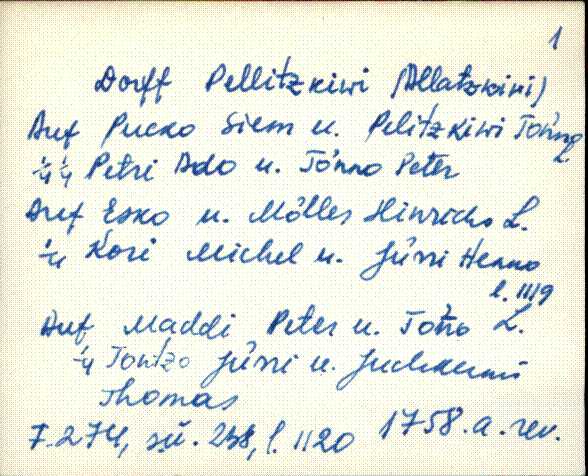 1
Dorff Pellitzkiwi (Allatzkiwi)
Auf Pucko Siem u. Pelitzkiwi Tönno
L.
1/4 1/4 Petri Ado u. Tönno Peter
Auf Esko u. Mölles Hinrichs L.
1/4 Kosi Michel u. Jürri Henno
l. 1119
Auf Maddi Peter u. Toño L.
1/4 Tontzo Jürri u.
Thomas
F. 274, sü. 258, l. 1120 1758. a. rev.